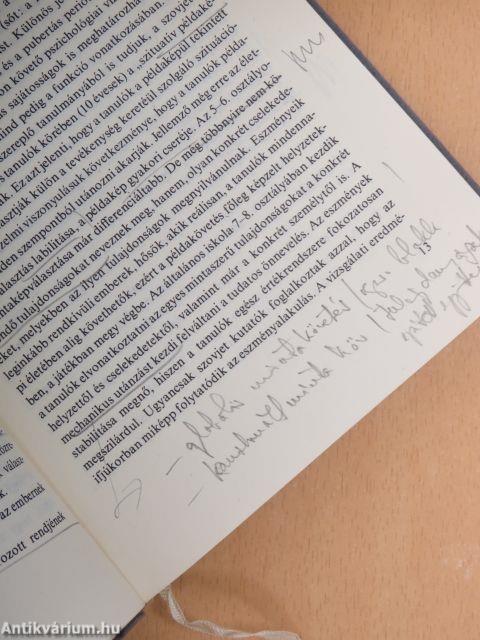 és a pubertás
on követő pszichológiai
s sajátosságok is meghatározha
mind pedig a funkció vonatkozásában.
szereplő tanulmányából is tudjuk, a szovjet
s tanulók körében (10 évesek) a „szituatív példaké-
k. Ez azt jelenti, hogy a tanulók a példaképül tekintett
asztják külön a tevékenység keretéül szolgáló szituáció-
zelmi viszonyulásuk következménye, hogy a tanulók példa-
nden szempontból utánozni akarják. Jellemző még erre az élet-
alasztás labilitása, a példakép gyakori cseréje. Az 5–6. osztályo-
aképválasztása már differenciáltabb. De még többnyire nem kö-
endő tulajdonságokat neveznek meg, hanem, olyan konkrét cselekede-
eket, melyekben az ilyen tulajdonságok megnyilvánulnak. Eszményeik
leginkább rendkívüli emberek, hősök, akik reálisan, a tanulók mindenna-
pi életében alig követhetők, ezért a példakövetés főleg képzelt helyzetek-
ben, a játékban megy végbe. Az általános iskola 7–8. osztályában kezdik
a tanulók elvonatkoztatni az egyes mintaszerű tulajdonságokat a konkrét
helyzettől és cselekedetektől, valamint már a konkrét személytől is. A
mechanikus utánzást kezdi felváltani a tudatos önnevelés. Az eszmények
stabilitása megnő, hiszen a tanulók egész értékrendszere fokozatosan
megszilárdul. Ugyancsak szovjet kutatók foglalkoztak azzal, hogy az
ifjúkorban miképp folytatódik az eszményalakulás. A vizsgálati eredmé-
13
– globális mintakövetés
az embernek
ozott rendjének
Antikvárium.hu